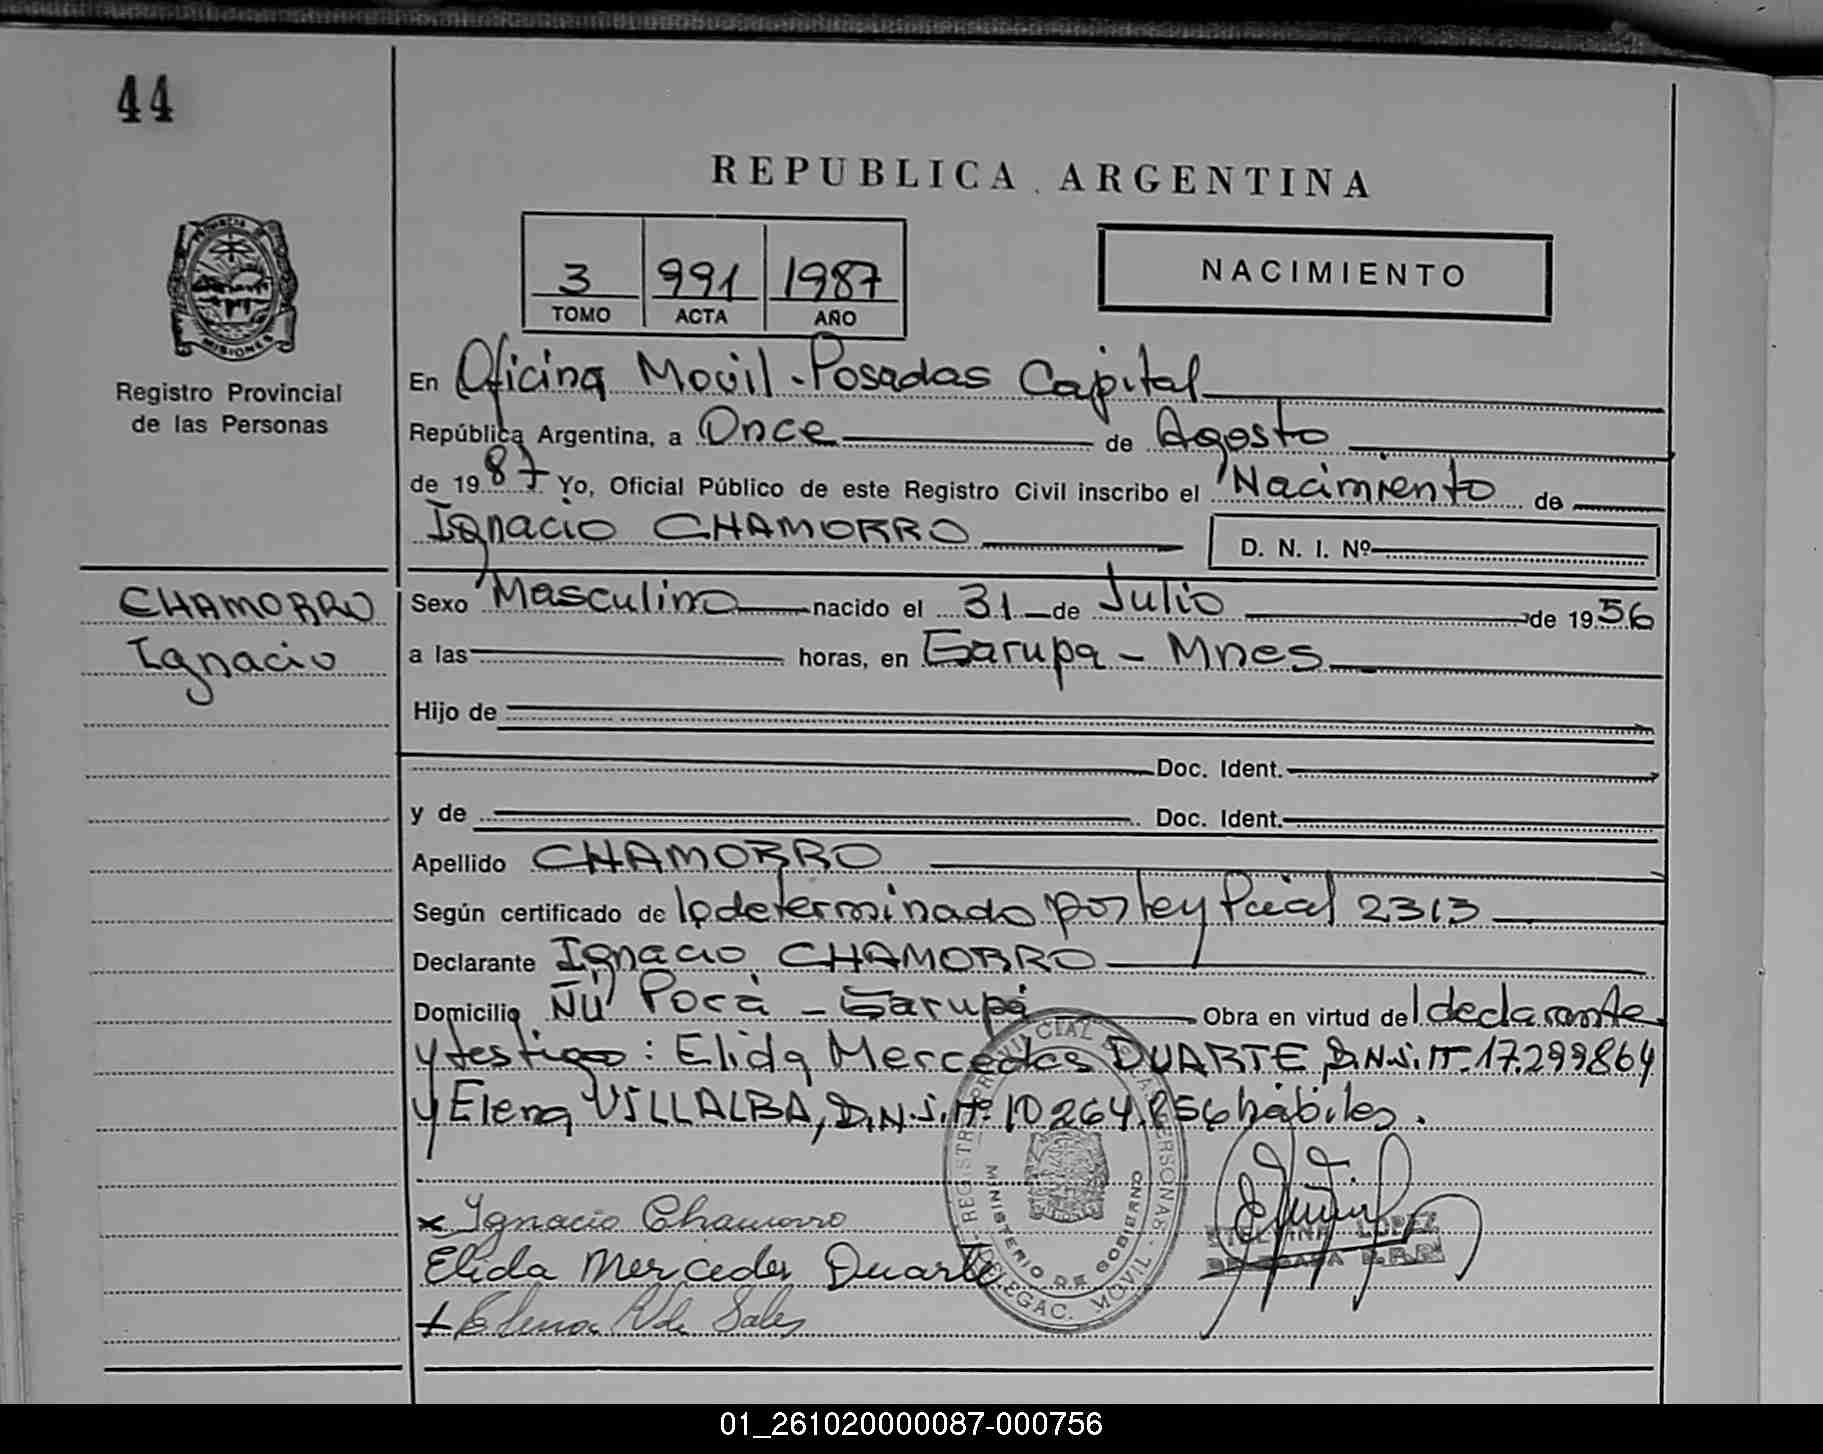 44
REPUBLICA ARGENTINA
3 991 1987
TOMO ACTA AÑO
NACIMIENTO
PROVINCIA DE MISIONES
Registro Provincial
de las Personas
En Oficina Movil - Posadas Capital
República Argentina, a Once de Agosto
de 1987 Yo, Oficial Público de este Registro Civil inscribo el Nacimiento de
Ignacio CHAMORRO D. N. I. Nº
CHAMORRO
Ignacio
Sexo Masculino nacido el 31 de Julio de 1956
a las horas, en Garupa - Mnes
Hijo de
Doc. Ident.
y de Doc. Ident.
Apellido CHAMORRO
Según certificado de lo determinado por ley Pcial 2313
Declarante Ignacio CHAMORRO
Domicilio Ñu Porá - Garupá Obra en virtud del declarante
y testigo: Elida Mercedes DUARTE, D.N.I. Nº 17.299864
y Elena VILLALBA, D.N.I. Nº 10264.856 hábiles.
x Ignacio Chamorro
Elida Mercedes Duarte
+ Elena V de Sales
REGISTRO PROVINCIAL DE LAS PERSONAS
MINISTERIO DE GOBIERNO
DELEGAC. MOVIL
LOPEZ
01_261020000087-000756